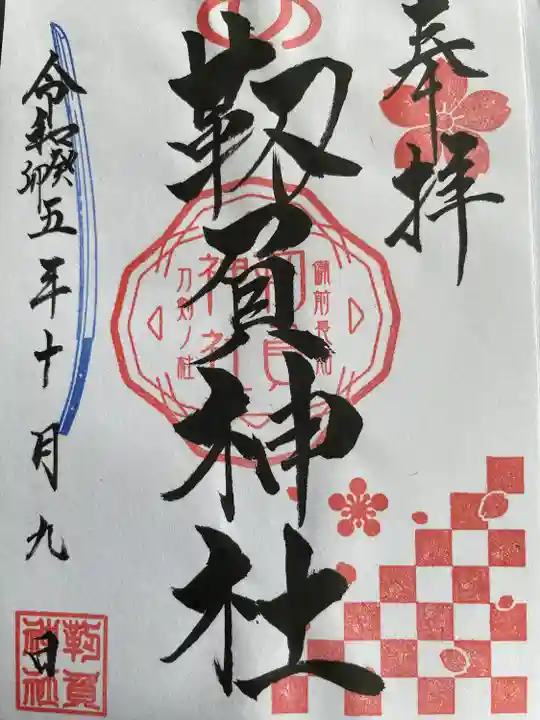 奉拝
靱負神社
備前長船
靱負
神社
刀剣ノ社
令和癸卯五年十月九日
靱負
神社